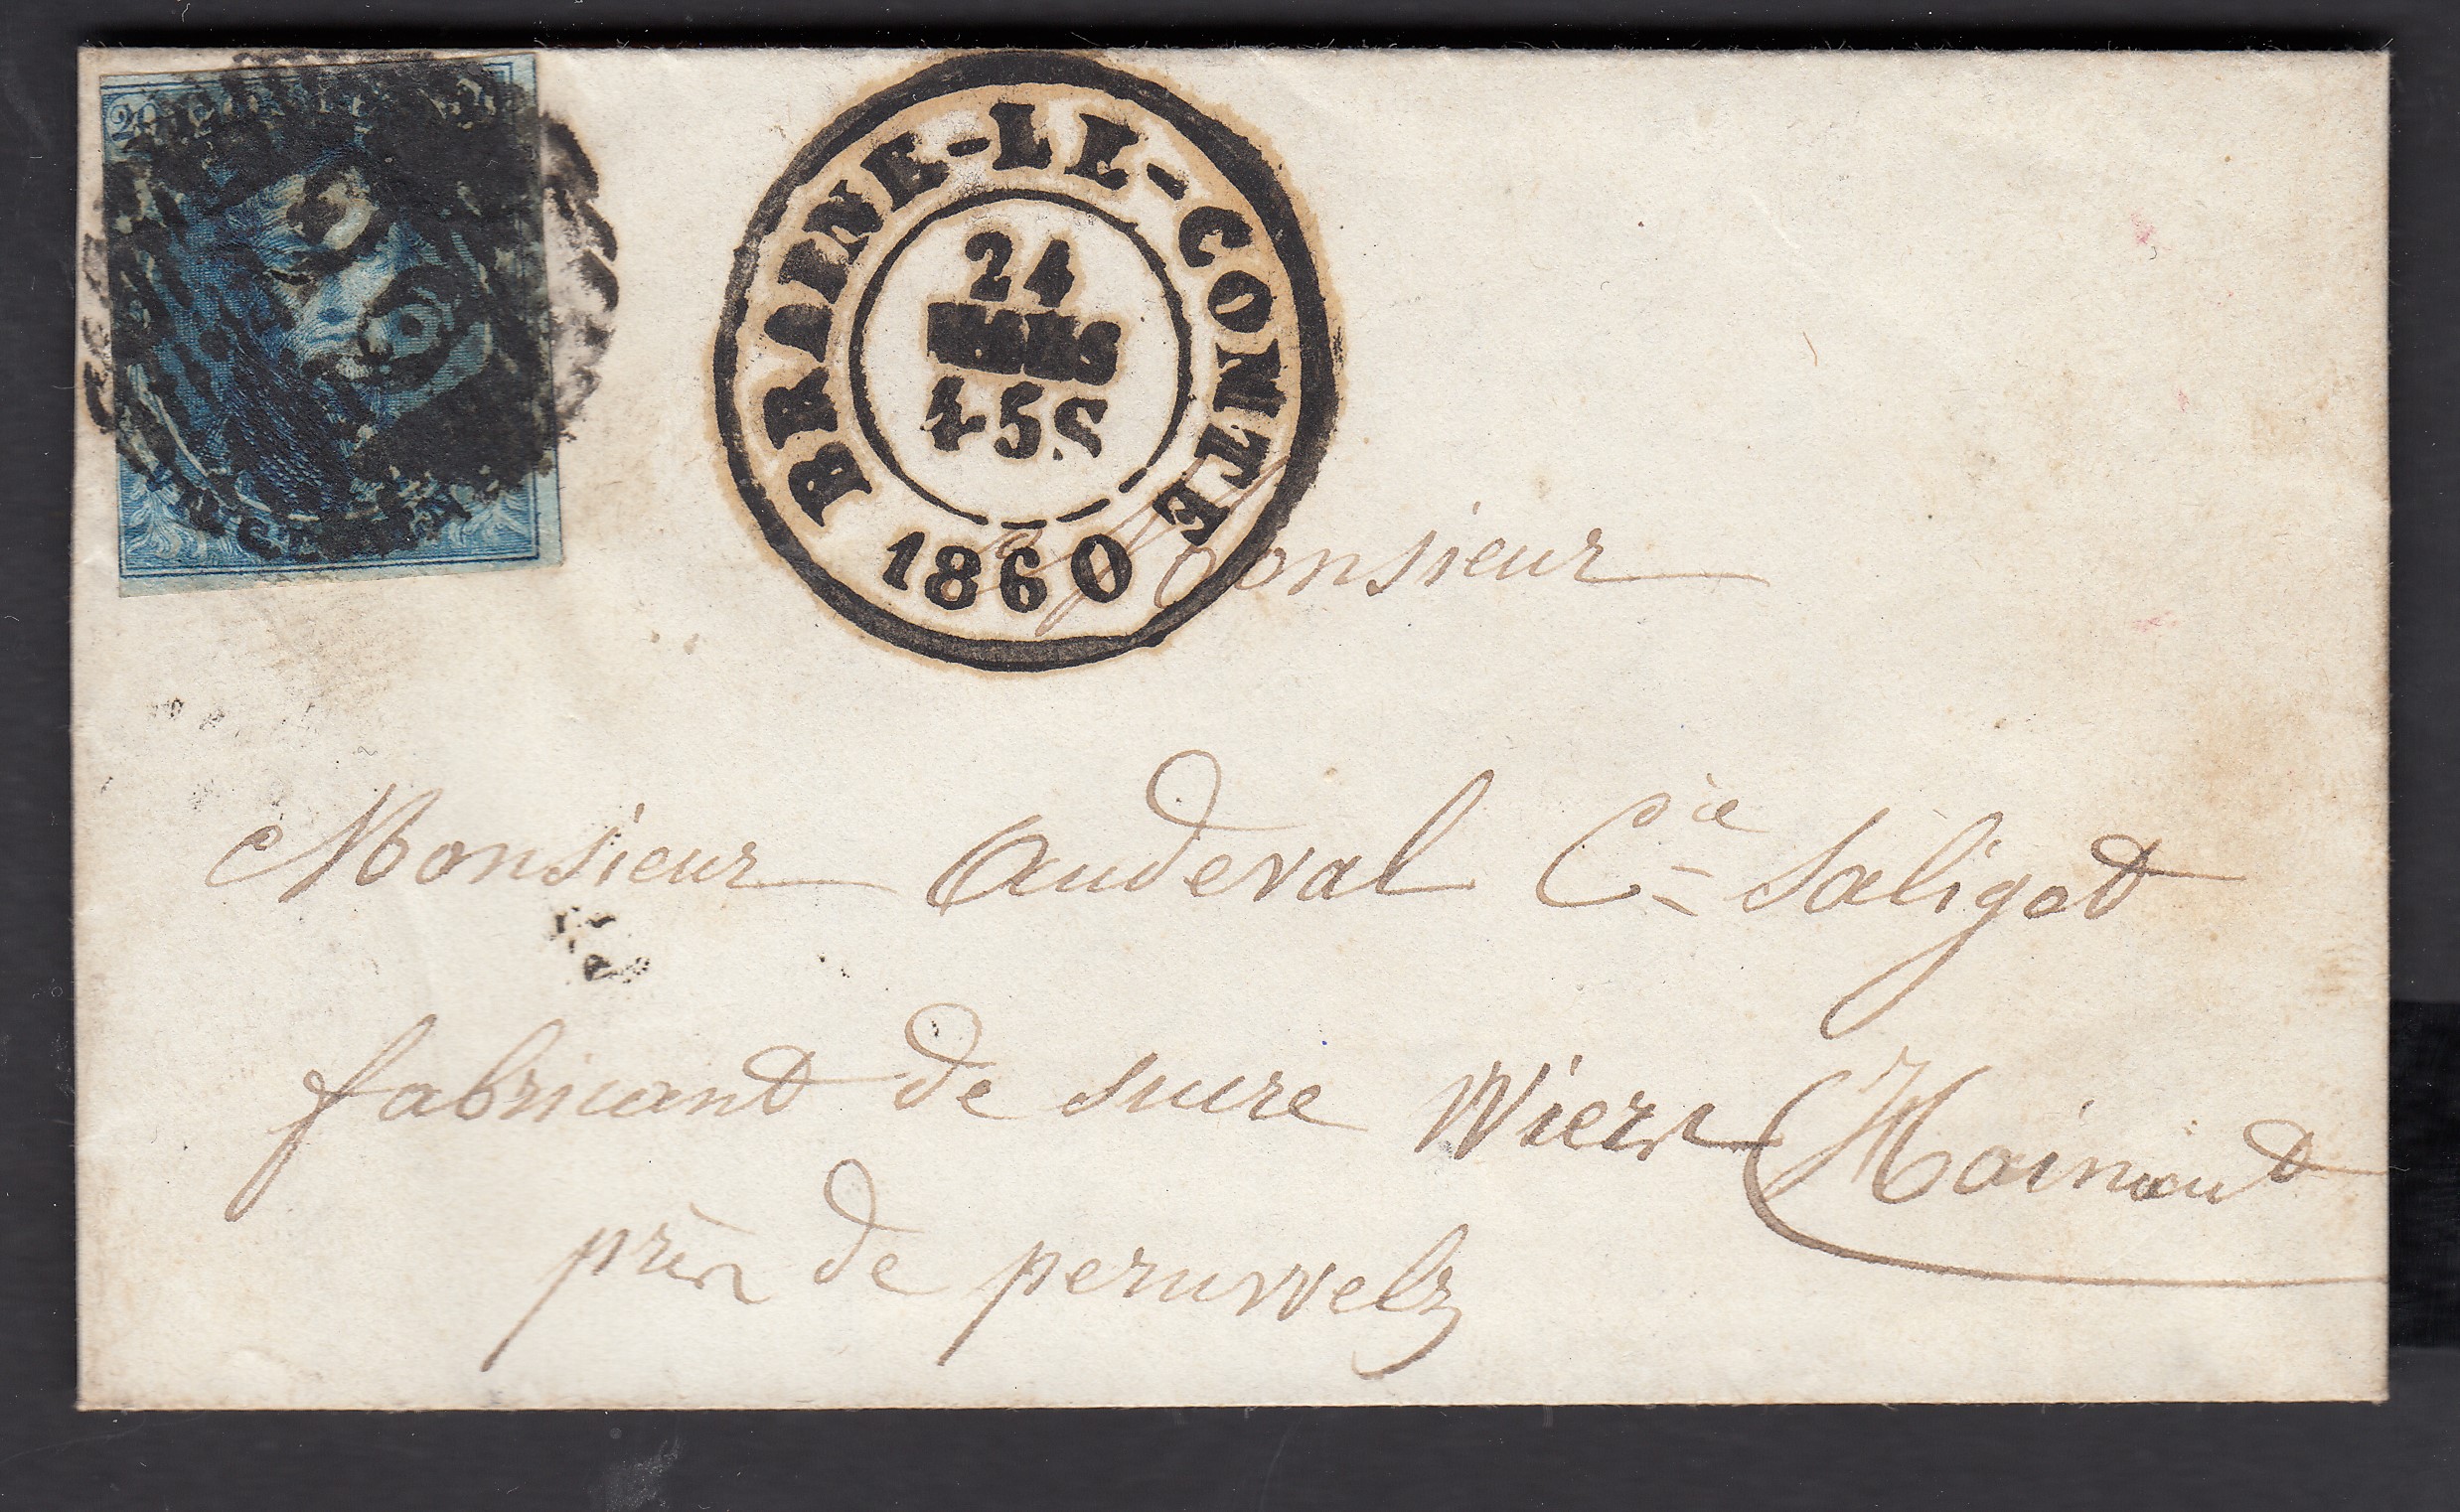 20
BRAINE-LE-COMTE
24
MARS
4-5S
1860
Monsieur
Monsieur Audeval Cie Saligot
fabricant de sucre Wiers Hainaut
près de peruwelz